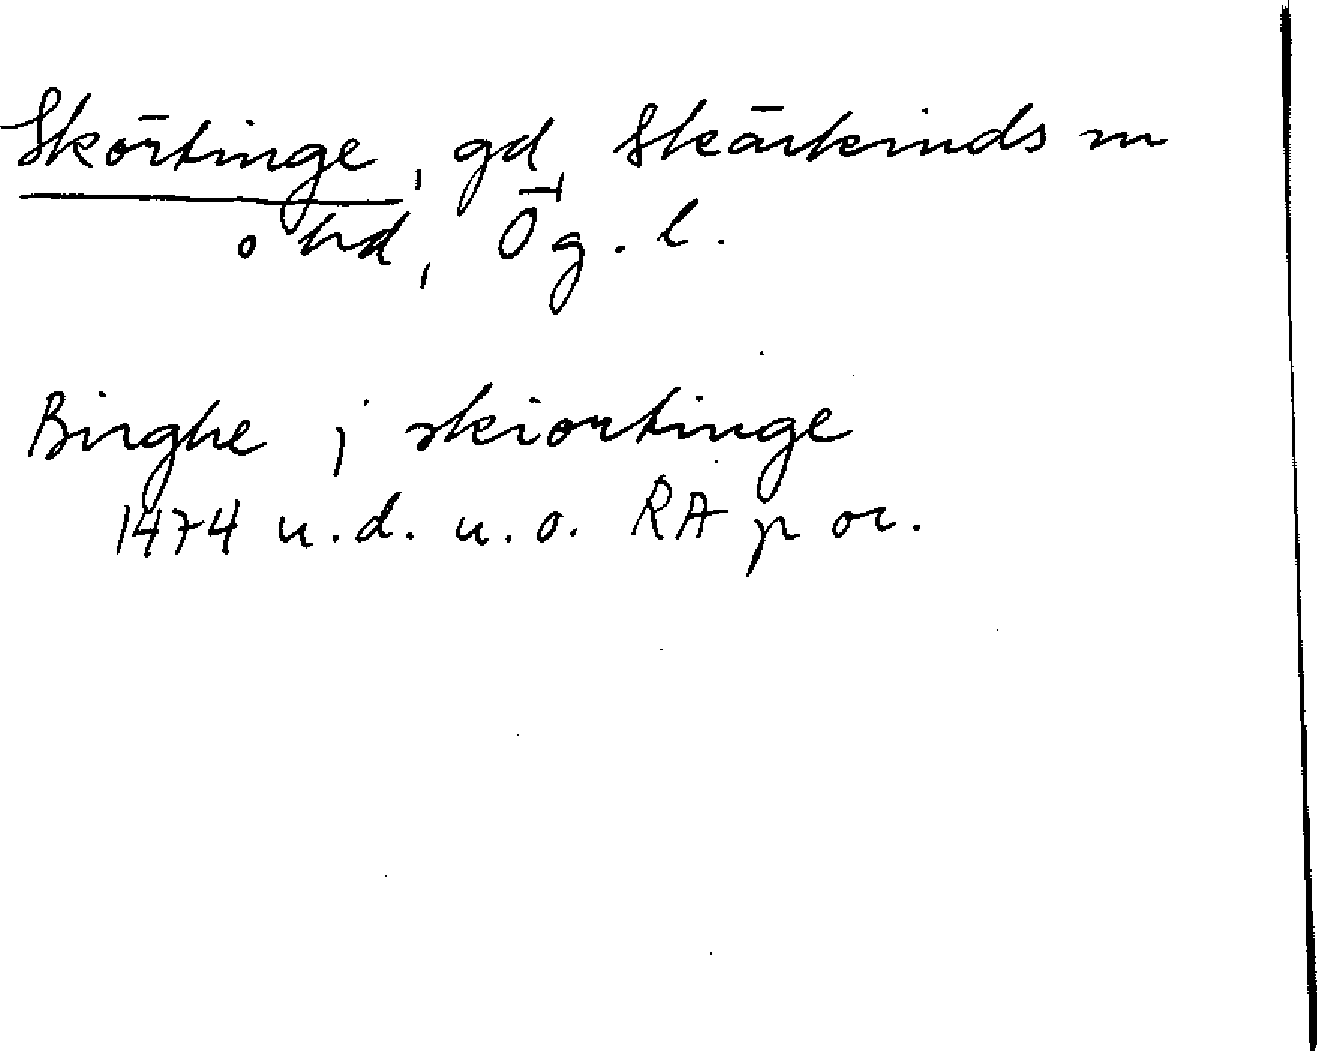 Skörtinge, gd Skärkinds sn
o hd, Ög. l.
Birghe j skiortinge
1474 u.d. u.o. RA p or.